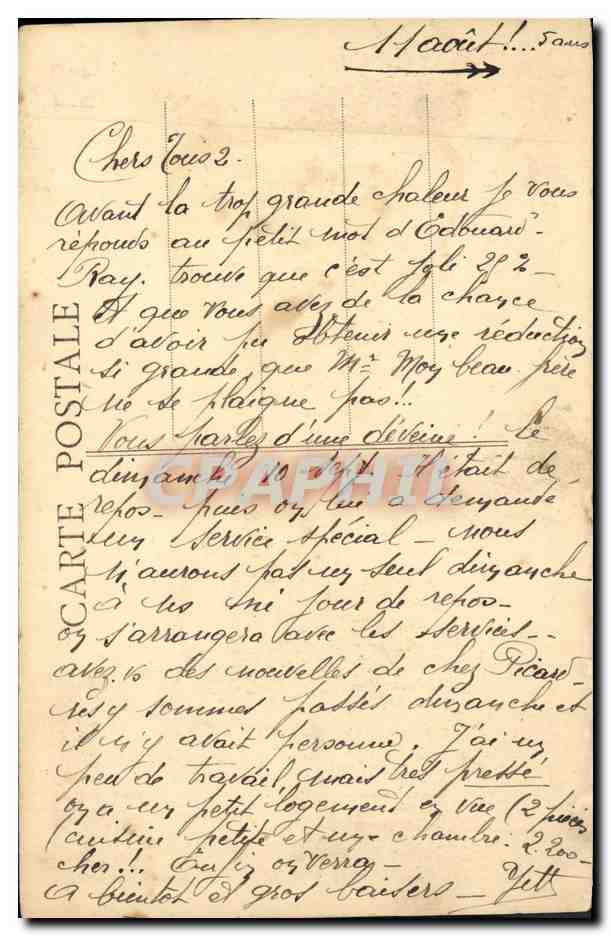 11 août !... 5 ans
Chers Tous 2.
Avant la trop grande chaleur je vous
réponds au petit mot d'Edouard -
Ray. trouve que c'est joli 25 % -
Et que vous avez de la chance
d'avoir pu obtenir une réduction
si grande, que Mr Mon beau père
ne se plaigne pas !!
Vous parlez d'une déveine ! le
dimanche 10 sept. il était de
repos - puis on lui a demandé
un service spécial - nous
n'aurons pas un seul dimanche
à ns ni jour de repos -
on s'arrangera avec les services --
avez. vs des nouvelles de chez Picard -
ns y sommes passés dimanche et
il n'y avait personne. J'ai un
peu de travail, mais très pressé
on a un petit logement en vue (2 pièces
(cuisine petite et une chambre : 2.200 -
cher !!! Enfin on verra -
A bientôt et gros baisers - Yett
CARTE POSTALE
CPAPHIL